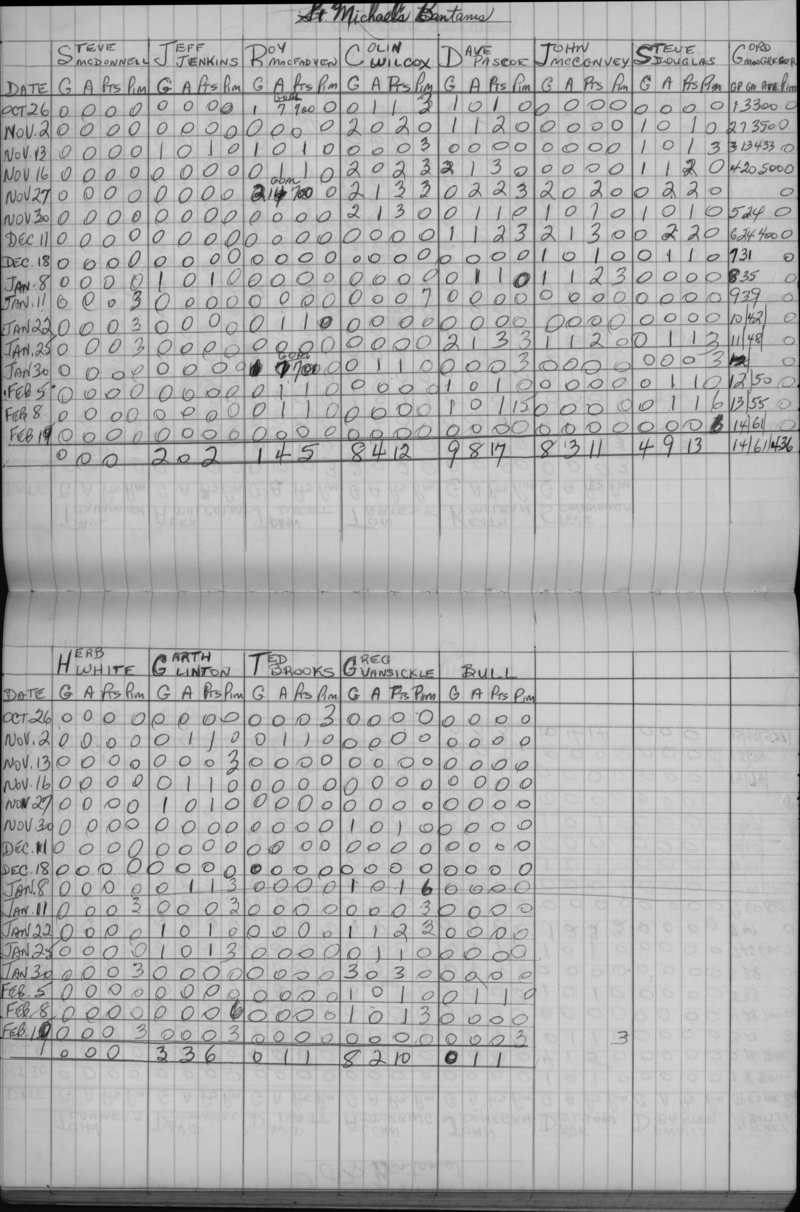 St. Michael's Bantams
STEVE MCDONNELL JEFF JENKINS ROY MACFADYEN COLIN WILCOX DAVE PASCOE JOHN MCCONVEY STEVE DOUGLAS GORD MACGREGOR
DATE G A Pts Pim G A Pts Pim G A Pts Pim G A Pts Pim G A Pts Pim G A Pts Pim G A Pts Pim GP GA AVE Pim
OCT 26 0 0 0 0 0 0 0 0 1 GOAL 7 700 0 0 1 1 3 1 0 1 0 0 0 0 0 0 0 0 0 1 3 300 0
NOV. 2 0 0 0 0 0 0 0 0 0 0 0 0 2 0 2 0 1 1 2 0 0 0 0 0 1 0 1 0 2 7 350 0
NOV. 13 0 0 0 0 1 0 1 0 1 0 1 0 0 0 0 3 0 0 0 0 0 0 0 0 1 0 1 3 3 13 433 0
NOV 16 0 0 0 0 0 0 0 0 0 1 1 0 2 0 2 3 2 1 3 0 0 0 0 0 1 1 2 0 4 20 500 0
NOV 27 0 0 0 0 0 0 0 0 GOAL 2 14 700 0 2 1 3 3 0 2 2 3 2 0 2 0 0 2 2 0 0
NOV 30 0 0 0 0 0 0 0 0 0 0 0 0 2 1 3 0 0 1 1 0 1 0 1 0 1 0 1 0 5 24 0
DEC 11 0 0 0 0 0 0 0 0 0 0 0 0 0 0 0 0 1 1 2 3 2 1 3 0 0 2 2 0 6 24 400 0
DEC. 18 0 0 0 0 0 0 0 0 0 0 0 0 0 0 0 0 0 0 0 0 1 0 1 0 0 1 1 0 7 31 0
JAN. 8 0 0 0 0 1 0 1 0 0 0 0 0 0 0 0 0 0 1 1 0 1 1 2 3 0 0 0 0 8 35 0
JAN. 11 0 0 0 3 0 0 0 0 0 0 0 0 0 0 0 7 0 0 0 0 0 0 0 0 0 0 0 0 9 39 0
JAN 22 0 0 0 3 0 0 0 0 0 1 1 0 0 0 0 0 0 0 0 0 0 0 0 0 0 0 0 0 10 42 0
JAN. 25 0 0 0 3 0 0 0 0 0 0 0 0 0 0 0 0 2 1 3 3 1 1 2 0 0 1 1 3 11 48 0
JAN 30 0 0 0 0 0 0 0 0 GOAL 7 700 0 0 1 1 0 0 0 0 3 0 0 0 0 0 0 0 3 0
FEB 5 0 0 0 0 0 0 0 0 0 1 1 0 0 0 0 0 1 0 1 0 0 0 0 0 0 1 1 0 12 50 0
FEB 8 0 0 0 0 0 0 0 0 0 1 1 0 0 0 0 0 1 0 1 15 0 0 0 0 0 1 1 6 13 55 0
FEB 19 0 0 0 0 0 0 0 0 0 0 0 0 0 0 0 0 0 0 0 0 0 0 0 0 0 0 0 6 14 61 0
0 0 0 2 0 2 1 4 5 8 4 12 9 8 17 8 3 11 4 9 13 14 61 436
HERB WHITE GARTH LINTON TED BROOKS GREG VANSICKLE BULL
DATE G A Pts Pim G A Pts Pim G A Pts Pim G A Pts Pim G A Pts Pim
OCT. 26 0 0 0 0 0 0 0 0 0 0 0 3 0 0 0 0 0 0 0 0
NOV. 2 0 0 0 0 0 1 1 0 0 1 1 0 0 0 0 0 0 0 0 0
NOV. 13 0 0 0 0 0 0 0 3 0 0 0 0 0 0 0 0 0 0 0 0
NOV. 16 0 0 0 0 0 1 1 0 0 0 0 0 0 0 0 0 0 0 0 0
NOV 27 0 0 0 0 1 0 1 0 0 0 0 0 0 0 0 0 0 0 0 0
NOV 30 0 0 0 0 0 0 0 0 0 0 0 0 1 0 1 0 0 0 0 0
DEC. 11 0 0 0 0 0 0 0 0 0 0 0 0 0 0 0 0 0 0 0 0
DEC. 18 0 0 0 0 0 0 0 0 0 0 0 0 0 0 0 0 0 0 0 0
JAN. 8 0 0 0 0 0 1 1 3 0 0 0 0 1 0 1 6 0 0 0 0
JAN. 11 0 0 0 3 0 0 0 3 0 0 0 0 0 0 0 3 0 0 0 0
JAN 22 0 0 0 0 1 0 1 0 0 0 0 0 1 1 2 3 0 0 0 0
JAN 25 0 0 0 0 1 0 1 3 0 0 0 0 0 1 1 0 0 0 0 0
JAN 30 0 0 0 3 0 0 0 0 0 0 0 0 3 0 3 0 0 0 0 0
FEB. 5 0 0 0 0 0 0 0 0 0 0 0 0 1 0 1 0 0 1 1 0
FEB. 8 0 0 0 0 0 0 0 6 0 0 0 0 1 0 1 3 0 0 0 0
FEB. 19 0 0 0 3 0 0 0 3 0 0 0 0 0 0 0 0 0 0 0 3 3
0 0 0 3 3 6 0 1 1 8 2 10 0 1 1